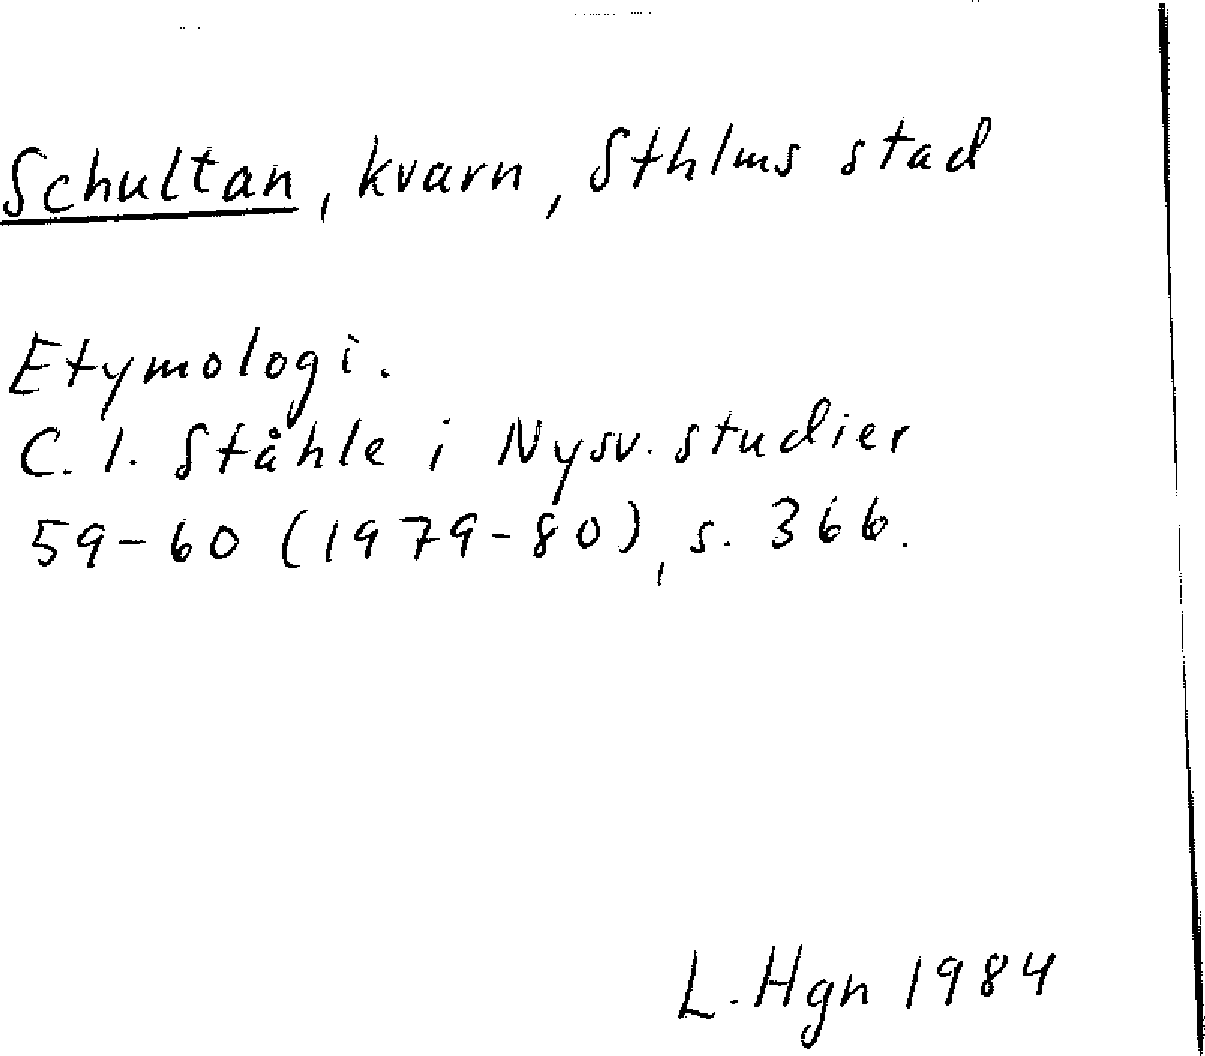 Schultan, kvarn, Sthlms stad
Etymologi.
C. I. Ståhle i Nysv. studier
59-60 (1979-80), s. 366.
L. Hgn 1984